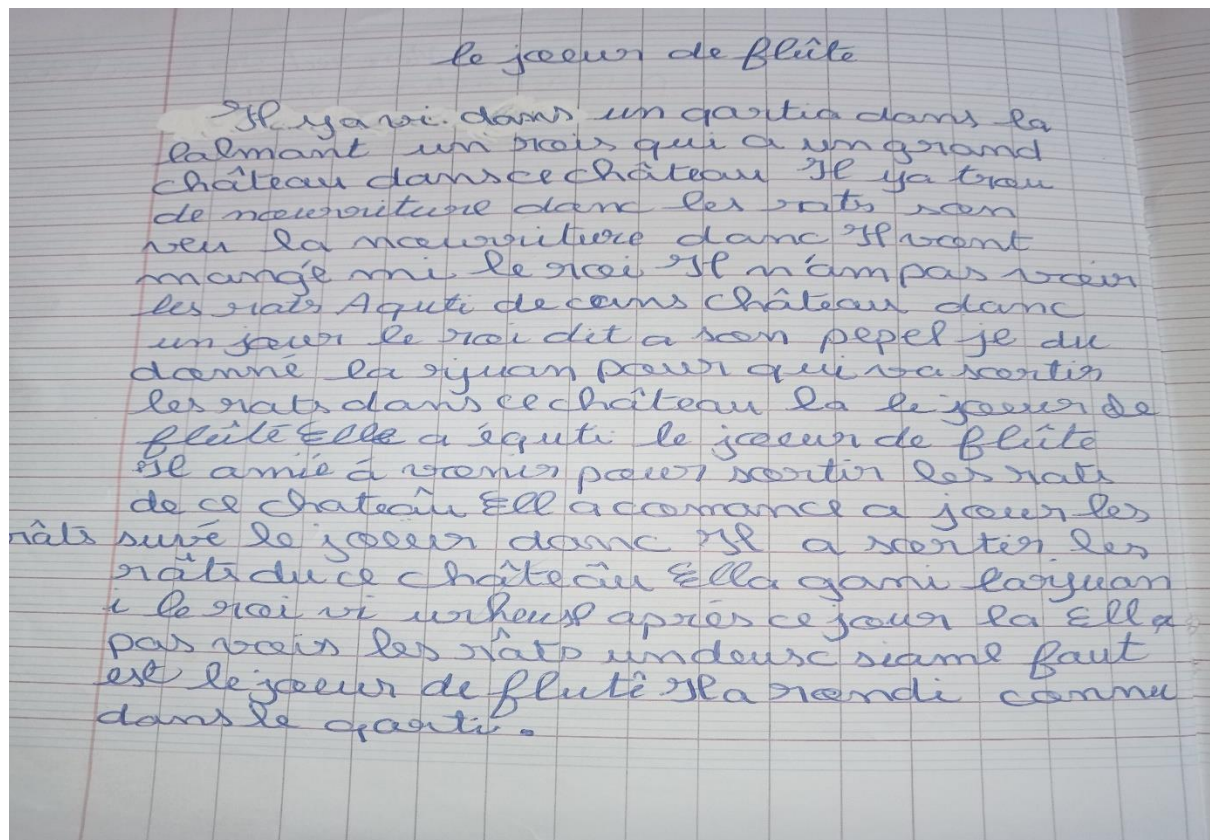 le joeur de flûte
Il ya vi dans un qartia dans la
lalmant un rois qui a un grand
château dans ce château Il ya trou
de nouuriture danc les rats son
veu la nouuriture danc Il vont
mangé mi le roi Il n'am pas voir
les rats Aquti de cons château danc
un jour le roi dit a son pepel je du
donné la rjuan pour qui va sortir
les rats dans ce château la le joeur de
flûte Elle a équti le joeur de flûte
Il amié à venir pour sortir les rats
de ce chateâu Ell a comance a jouer les
râts suvé le joeur danc Il a sortir les
râts du ce châteâu Ella gani larjuan
i le roi vi urheuse après ce jour la Ella
pas voir les râts undousc siame faut
est le joeur de flutê Il a rendi connu
dans le qarti.